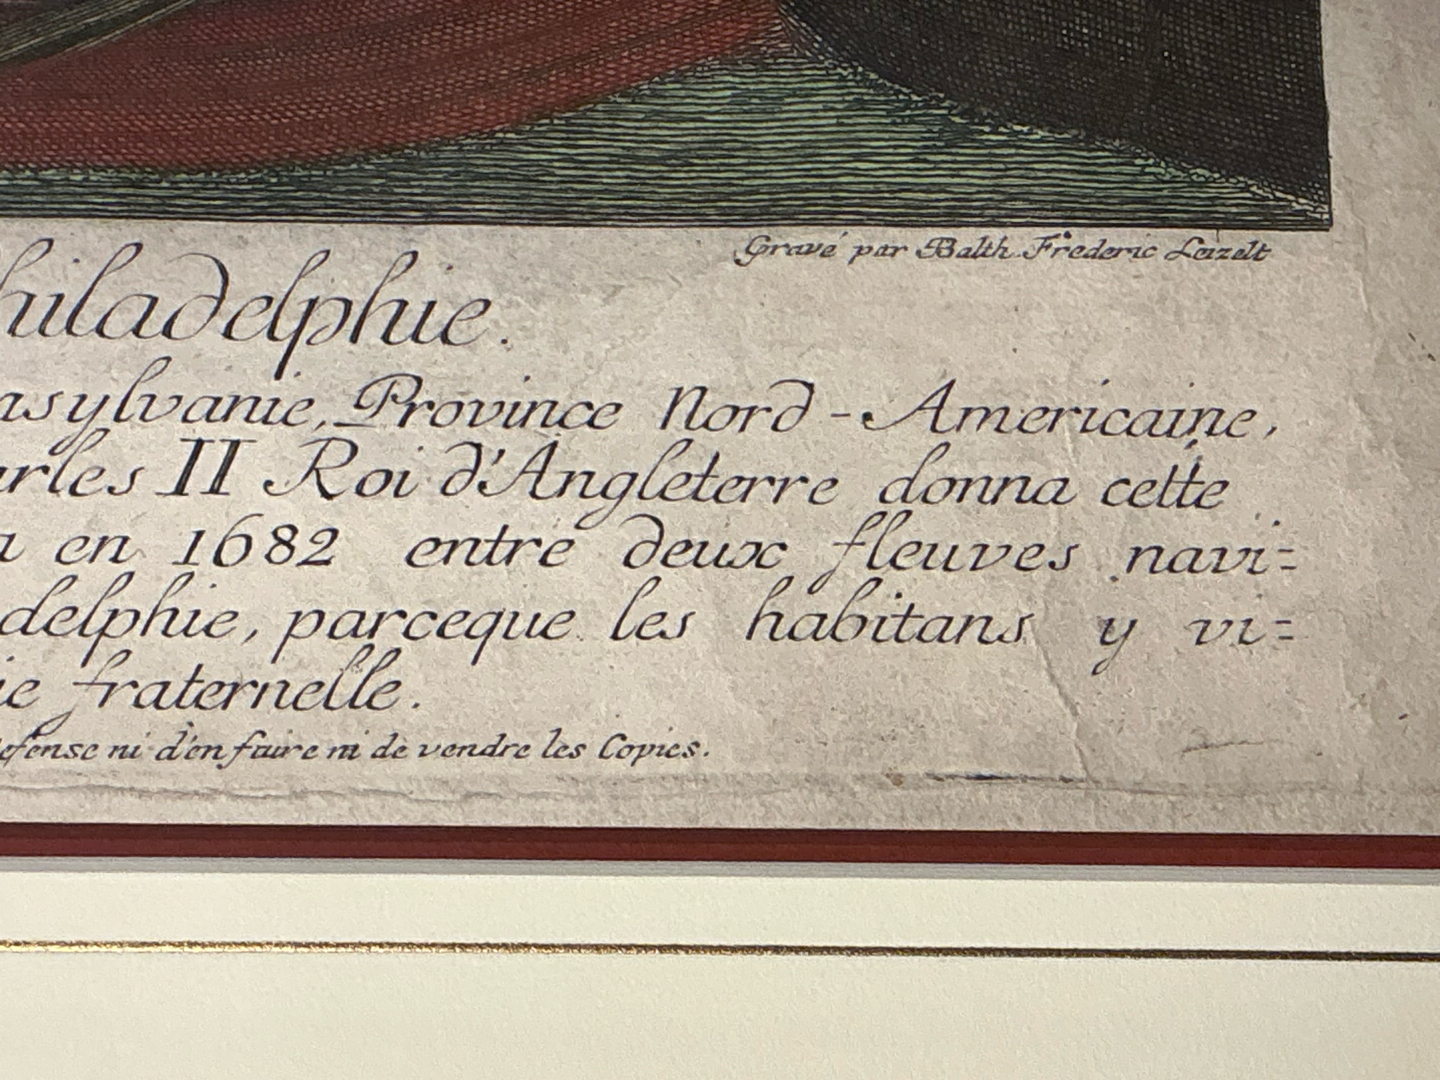 Gravé par Balth. Frederic Leizelt
hiladelphie.
nsylvanie, Province Nord-Americaine,
rles II Roi d'Angleterre donna cette
a en 1682 entre deux fleuves navi=
delphie, parceque les habitans y vi=
ie fraternelle.
efense ni d'en faire ni de vendre les Copies.